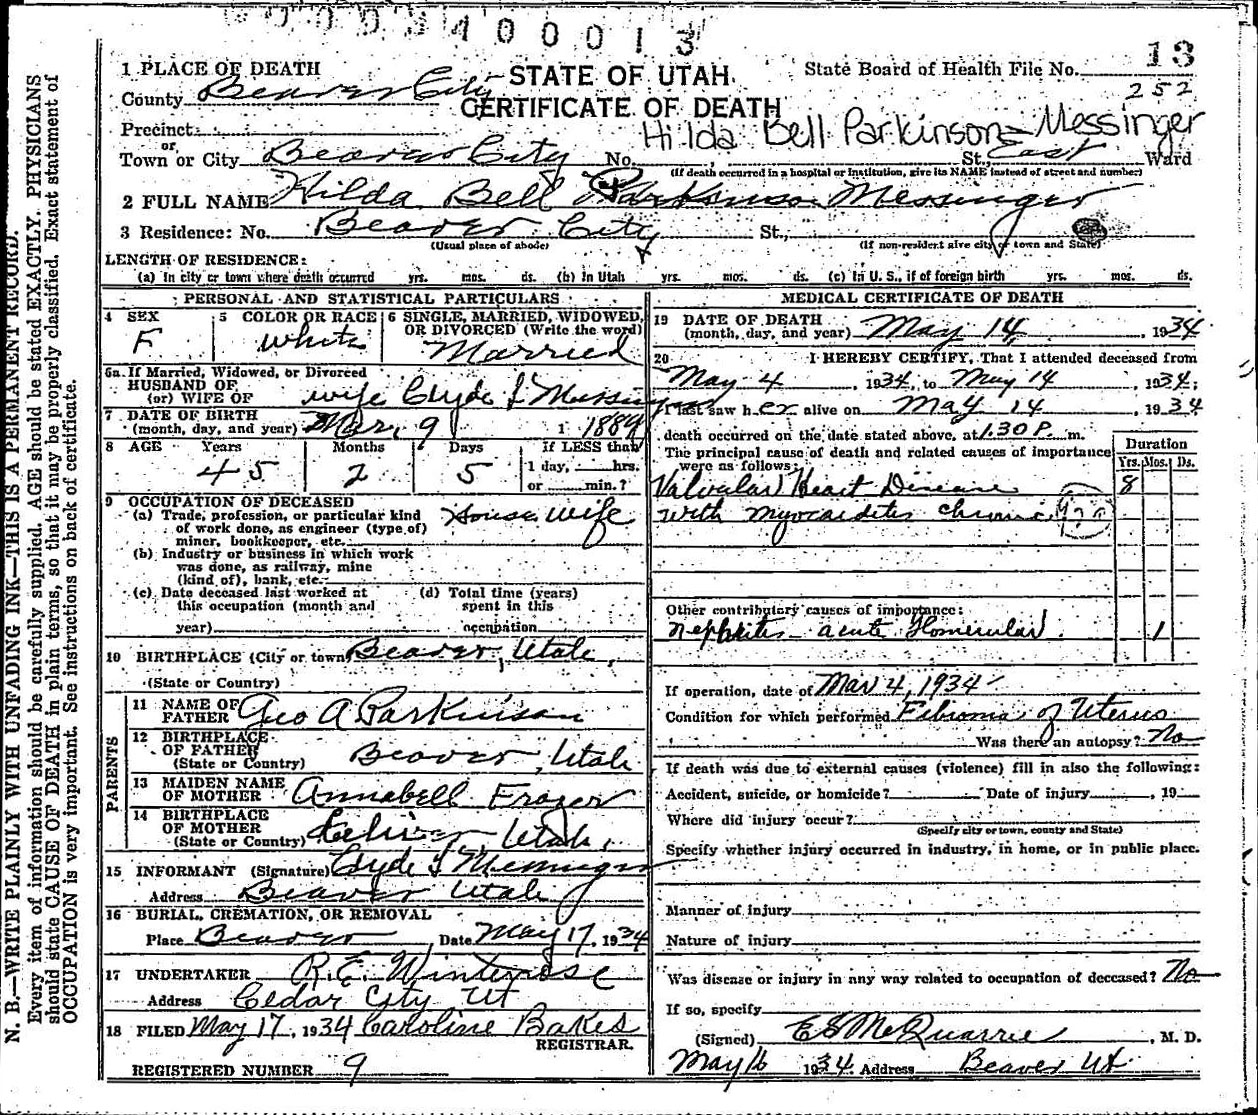 0003400013
13
1 PLACE OF DEATH
STATE OF UTAH
CERTIFICATE OF DEATH
State Board of Health File No.
252
County Beaver City
Precinct
Hilda Bell Parkinson-Messinger
or
Town or City Beaver City No. , St., East Ward
(If death occurred in a hospital or institution, give its NAME instead of street and number)
2 FULL NAME Hilda Bell Parkinson Messinger
3 Residence: No. Beaver City St.,
(Usual place of abode) (If non-resident give city or town and State)
LENGTH OF RESIDENCE:
(a) In city or town where death occurred yrs. mos. ds. (b) In Utah yrs. mos. ds. (c) In U. S., if of foreign birth yrs. mos. ds.
PERSONAL AND STATISTICAL PARTICULARS
4 SEX
F
5 COLOR OR RACE
white
6 SINGLE, MARRIED, WIDOWED,
OR DIVORCED (Write the word)
Married
6a If Married, Widowed, or Divorced
HUSBAND OF
(or) WIFE OF wife Clyde
7 DATE OF BIRTH
(month, day, and year) Mar. 9 1 1889
8 AGE Years Months Days If LESS than
45 2 5 1 day, hrs.
or min.?
9 OCCUPATION OF DECEASED
(a) Trade, profession, or particular kind
of work done, as engineer (type of)
miner, bookkeeper, etc. House wife
(b) Industry or business in which work
was done, as railway, mine
(kind of), bank, etc.
(c) Date deceased last worked at
this occupation (month and
year)
(d) Total time (years)
spent in this
occupation
10 BIRTHPLACE (City or town) Beaver, Utah,
(State or Country)
PARENTS
11 NAME OF
FATHER Geo A Parkinson
12 BIRTHPLACE
OF FATHER
(State or Country) Beaver, Utah
13 MAIDEN NAME
OF MOTHER Annabell Frazer
14 BIRTHPLACE
OF MOTHER
(State or Country) Utah,
15 INFORMANT (Signature) Clyde
Address Beaver Utah
16 BURIAL, CREMATION, OR REMOVAL
Place Beaver Date May 17, 1934
17 UNDERTAKER R.E. Winterose
Address Cedar City Ut
18 FILED May 17, 1934 Caroline Bakes
REGISTRAR.
REGISTERED NUMBER 9
MEDICAL CERTIFICATE OF DEATH
19 DATE OF DEATH
(month, day, and year) May 14, 1934
20 I HEREBY CERTIFY, That I attended deceased from
May 4, 1934, to May 14, 1934;
I last saw her alive on May 14, 1934
death occurred on the date stated above, at 1.30 P. m.
The principal cause of death and related causes of importance
were as follows:
Duration
Yrs. Mos. Ds.
Valvular Heart Disease 8
with myocarditis chronic
Other contributory causes of importance:
Nephritis acute Glomerular 1
If operation, date of Mar 4, 1934
Condition for which performed Fibroma of Uterus
Was there an autopsy? No
If death was due to external causes (violence) fill in also the following:
Accident, suicide, or homicide? Date of injury , 19
Where did injury occur?
(Specify city or town, county and State)
Specify whether injury occurred in industry, in home, or in public place.
Manner of injury
Nature of injury
Was disease or injury in any way related to occupation of deceased? No
If so, specify
(Signed) E S McQuarrie, M. D.
May 16 1934 Address Beaver Ut
N. B.—WRITE PLAINLY WITH UNFADING INK—THIS IS A PERMANENT RECORD.
Every item of information should be carefully supplied. AGE should be stated EXACTLY. PHYSICIANS
should state CAUSE OF DEATH in plain terms, so that it may be properly classified. Exact statement of
OCCUPATION is very important. See instructions on back of certificate.